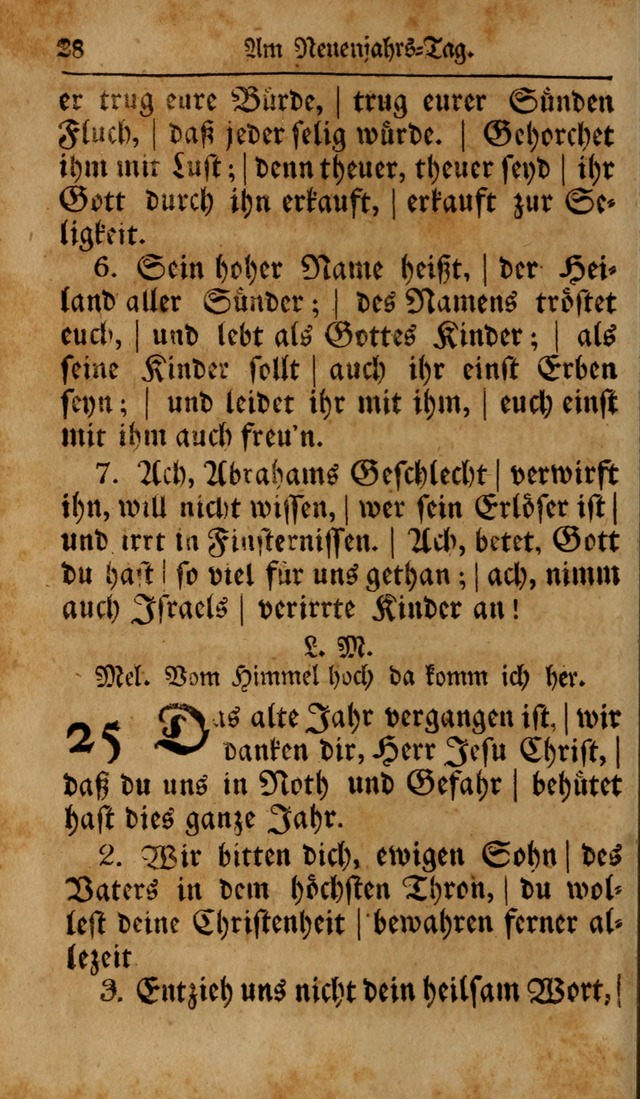 28 Am Neuenjahrs-Tag.
er trug eure Bürde, | trug eurer Sünden
Fluch, | daß jeder selig würde. | Gehorchet
ihm mit Lust; | denn theuer, theuer seyd | ihr
Gott durch ihn erkauft, | erkauft zur Se-
ligkeit.
6. Sein hoher Name heißt, | der Hei-
land aller Sünder; | des Namens tröstet
euch, | und lebt als Gottes Kinder; | als
seine Kinder sollt | auch ihr einst Erben
seyn; | und leidet ihr mit ihm, | euch einst
mit ihm auch freu'n.
7. Ach, Abrahams Geschlecht | verwirft
ihn, will nicht wissen, | wer sein Erlöser ist |
und irrt in Finsternissen. | Ach, betet, Gott
du hast | so viel für uns gethan; | ach, nimm
auch Israels | verirrte Kinder an!
L. M.
Mel. Vom Himmel hoch da komm ich her.
25 Das alte Jahr vergangen ist, | wir
danken dir, Herr Jesu Christ, |
daß du uns in Noth und Gefahr | behütet
hast dies ganze Jahr.
2. Wir bitten dich, ewigen Sohn | des
Vaters in dem höchsten Thron, | du wol-
lest deine Christenheit | bewahren ferner al-
lezeit
3. Entzieh uns nicht dein heilsam Wort, |